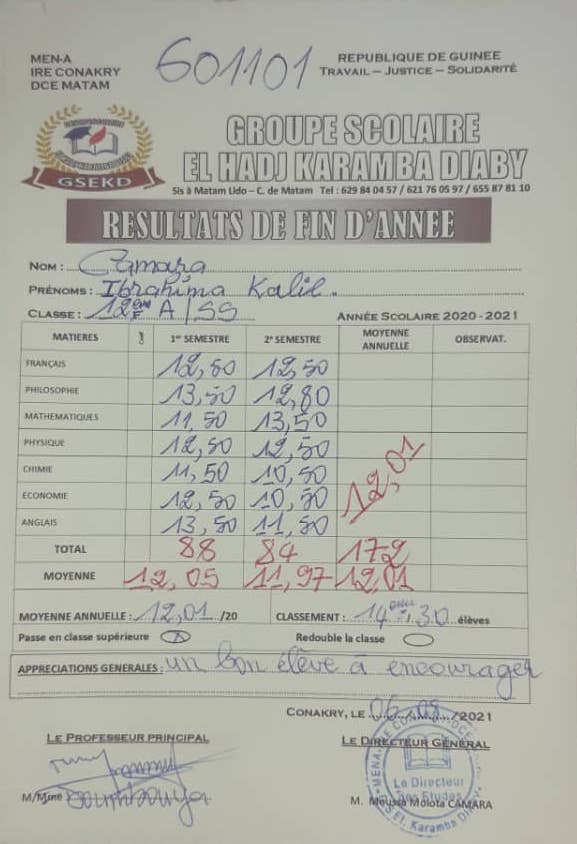 MEN-A
IRE CONAKRY
DCE MATAM
601101
REPUBLIQUE DE GUINEE
TRAVAIL – JUSTICE – SOLIDARITÉ
GSEKD
GROUPE SCOLAIRE
EL HADJ KARAMBA DIABY
Sis à Matam Lido – C. de Matam Tel : 629 84 04 57 / 621 76 05 97 / 655 87 81 10
RESULTATS DE FIN D'ANNEE
NOM : Camara
PRÉNOMS : Ibrahima Kalil.
CLASSE : 12ème A / SS ANNÉE SCOLAIRE 2020 - 2021
MATIERES 1er SEMESTRE 2e SEMESTRE MOYENNE ANNUELLE OBSERVAT.
FRANÇAIS 12,50 12,50
PHILOSOPHIE 13,50 12,80
MATHEMATIQUES 11,50 13,50
PHYSIQUE 12,50 12,50
CHIMIE 11,50 10,50
ECONOMIE 12,50 10,50
ANGLAIS 13,50 11,50
12,01
TOTAL 88 84 172
MOYENNE 12,05 11,97 12,01
MOYENNE ANNUELLE : 12,01 /20 CLASSEMENT : 14ème / 30 élèves
Passe en classe supérieure Redouble la classe
APPRECIATIONS GENERALES : un bon élève à encourager
CONAKRY, LE 06/08/2021
LE PROFESSEUR PRINCIPAL LE DIRECTEUR GÉNÉRAL
Le Directeur
des Etudes
El. Karamba Diaby
M/Mme M. Moussa Molota CAMARA